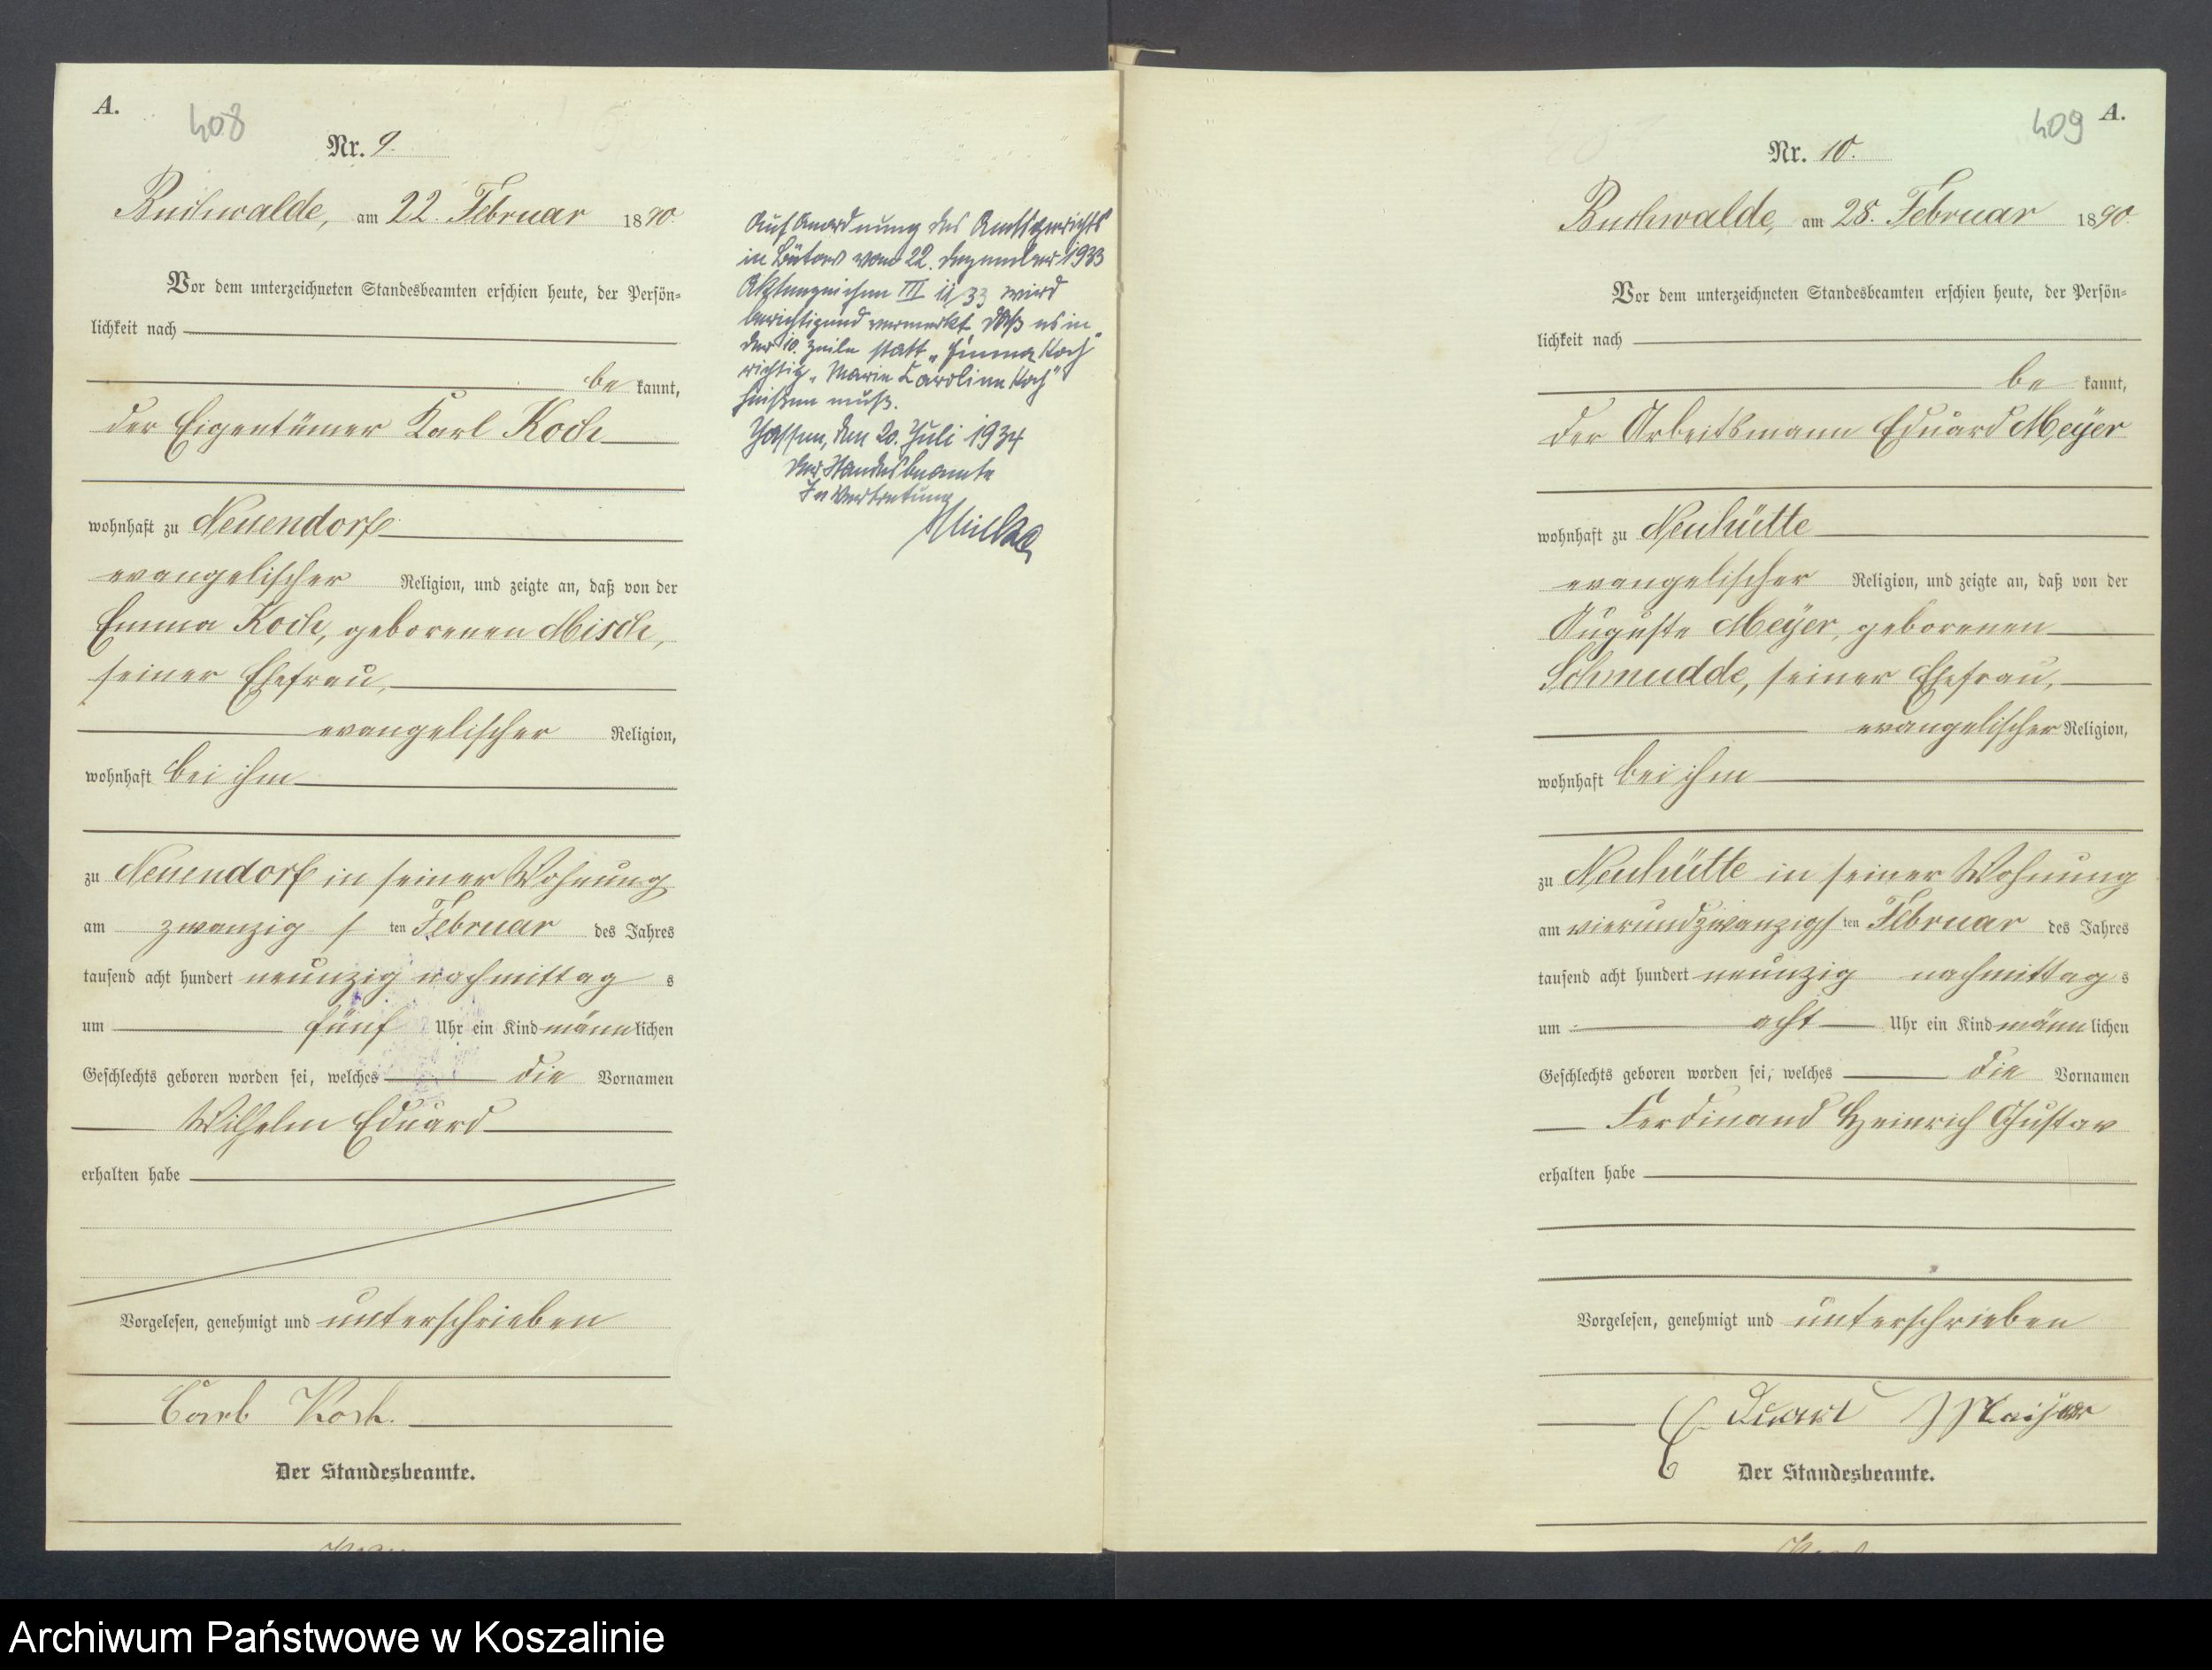 A.
408
Nr. 9.
Buchwalde, am 22. Februar 1890.
Vor dem unterzeichneten Standesbeamten erschien heute, der Persön=
lichkeit nach
be kannt,
der Eigentümer Karl Koch
wohnhaft zu Neuendorf
evangelischer Religion, und zeigte an, daß von der
Emma Koch, geborenen Misch,
seiner Ehefrau,
evangelischer Religion,
wohnhaft bei ihm
zu Neuendorf in seiner Wohnung
am zwanzig s ten Februar des Jahres
tausend acht hundert neunzig nachmittag s
um fünf Uhr ein Kind männlichen
Geschlechts geboren worden sei, welches die Vornamen
Wilhelm Eduard
erhalten habe
Vorgelesen, genehmigt und unterschrieben
Carl Koch.
Der Standesbeamte.
Auf Anordnung des Amtsgerichts
in Bütow vom 22. Dezember 1933
Aktenzeichen III 11/33 wird
berichtigend vermerkt, daß es in
der 10. Zeile statt „Emma Koch"
richtig „Marie Caroline Koch"
heißen muß.
Jassen, den 20. Juli 1934
Der Standesbeamte
In Vertretung
409
A.
Nr. 10.
Buchwalde, am 25. Februar 1890.
Vor dem unterzeichneten Standesbeamten erschien heute, der Persön=
lichkeit nach
be kannt,
der Arbeitsmann Eduard Meÿer
wohnhaft zu Neuhütte
evangelischer Religion, und zeigte an, daß von der
Auguste Meÿer, geborenen
Schmudde, seiner Ehefrau,
evangelischer Religion,
wohnhaft bei ihm
zu Neuhütte in seiner Wohnung
am vierundzwanzigs ten Februar des Jahres
tausend acht hundert neunzig nachmittag s
um acht Uhr ein Kind männlichen
Geschlechts geboren worden sei, welches die Vornamen
Ferdinand Heinrich Gustav
erhalten habe
Vorgelesen, genehmigt und unterschrieben
Der Standesbeamte.
Archiwum Państwowe w Koszalinie